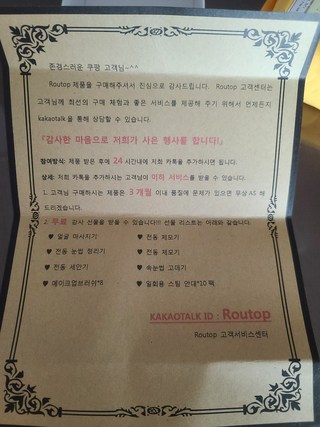 존경스러운 쿠팡 고객님~^^
Routop 제품을 구매해주셔서 진심으로 감사드립니다. Routop 고객센터는
고객님께 최선의 구매 체험과 좋은 서비스를 제공해 주기 위해서 언제든지
kakaotalk 을 통해 상담할 수 있습니다.
「감사한 마음으로 저희가 사은 행사를 합니다!」
참여방식: 제품 받은 후에 24 시간내에 저희 카톡을 추가하시면 됩니다.
상세: 저희 카톡을 추가하시는 고객님이 이하 서비스를 받을 수 있습니다.
1. 고객님 구매하시는 제품은 3 개월 이내 품질에 문제가 있으면 무상 AS 해
드리겠습니다.
2. 무료 감사 선물을 받을 수 있습니다!! 선물 리스트는 아래와 같습니다.
♥ 얼굴 마사지기 ♥ 전동 제모기
♥ 전동 눈썹 정리기 ♥ 전동 제모기
♥ 전동 세안기 ♥ 속눈썹 고데기
♥ 메이크업브러쉬*8 ♥ 일회용 스팀 안대*10 팩
KAKAOTALK ID : Routop
Routop 고객서비스센터